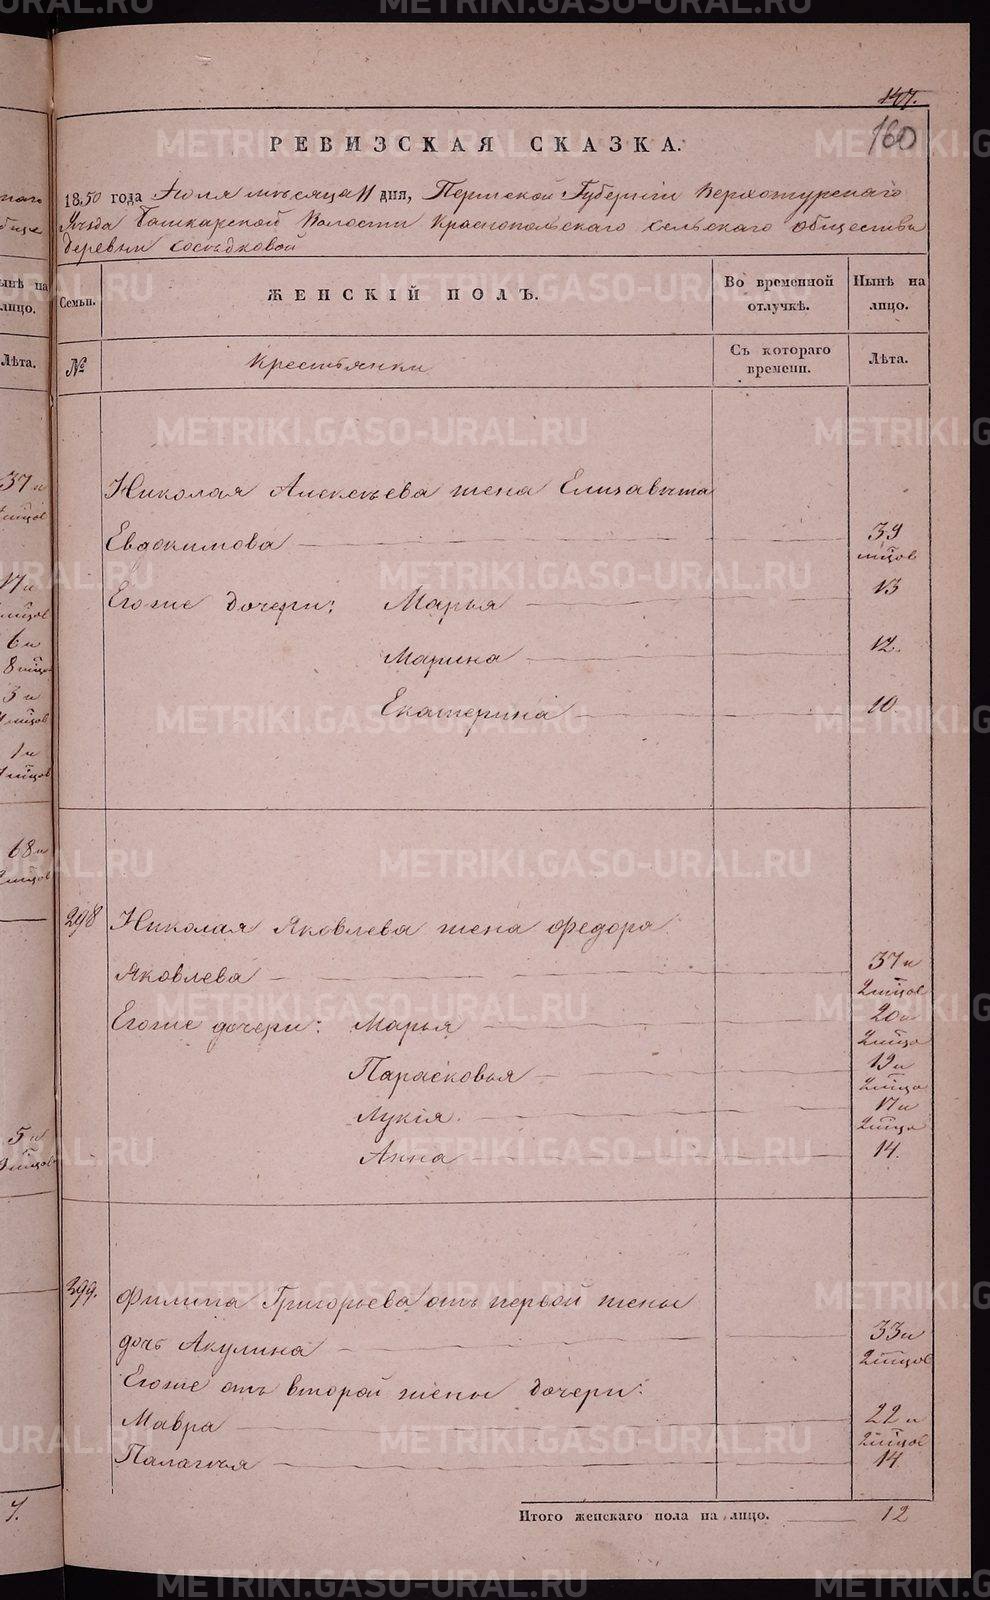 147.
160
РЕВИЗСКАЯ СКАЗКА.
1850 года Июля месяца 11 дня, Пермской Губернии Верхотурскаго
Уезда Башкарской Волости Краснопольскаго сельскаго общества
деревни Соседковой
Семьи. ЖЕНСКІЙ ПОЛЪ. Во временной отлучкѣ. Нынѣ на лицо.
№ Крестьянки Съ котораго времени. Лѣта.
Николая Алексѣева жена Елизавѣта
Евдокимова 39
мцов
Егоже дочери: Марья 13
Марина 12.
Екатерина 10
298 Николая Яковлева жена Федора
Яковлева 37 и
2 мцов
Егоже дочери: Марья 20 и
2 мца
Парасковья 19 и
2 мца
Лукія. 17 и
2 мца
Анна 14.
299. Филипа Григорьева отъ первой жены
дочь Акулина 33 и
2 мцов
Егоже отъ второй жены дочери:
Мавра 22 и
2 мцов
Палагѣя 14
Итого женскаго пола на лицо. 12